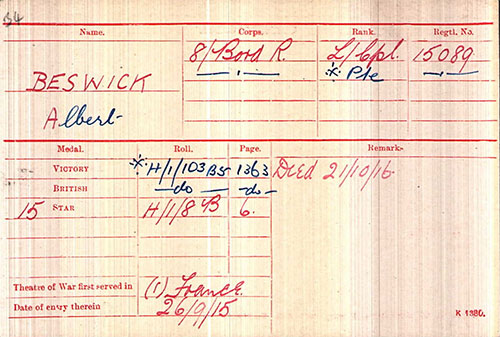 54
Name. Corps. Rank. Regtl. No.
8/Bord R. L/Cpl. 15089
— " — * Pte — " —
BESWICK
Albert
Medal. Roll. Page. Remarks
VICTORY * H/1/103 B5 1363 Died 21/10/16.
BRITISH — do — -do-
15 STAR H/1/8 B 6.
Theatre of War first served in (1) France.
Date of entry therein 26/9/15
K 1380.